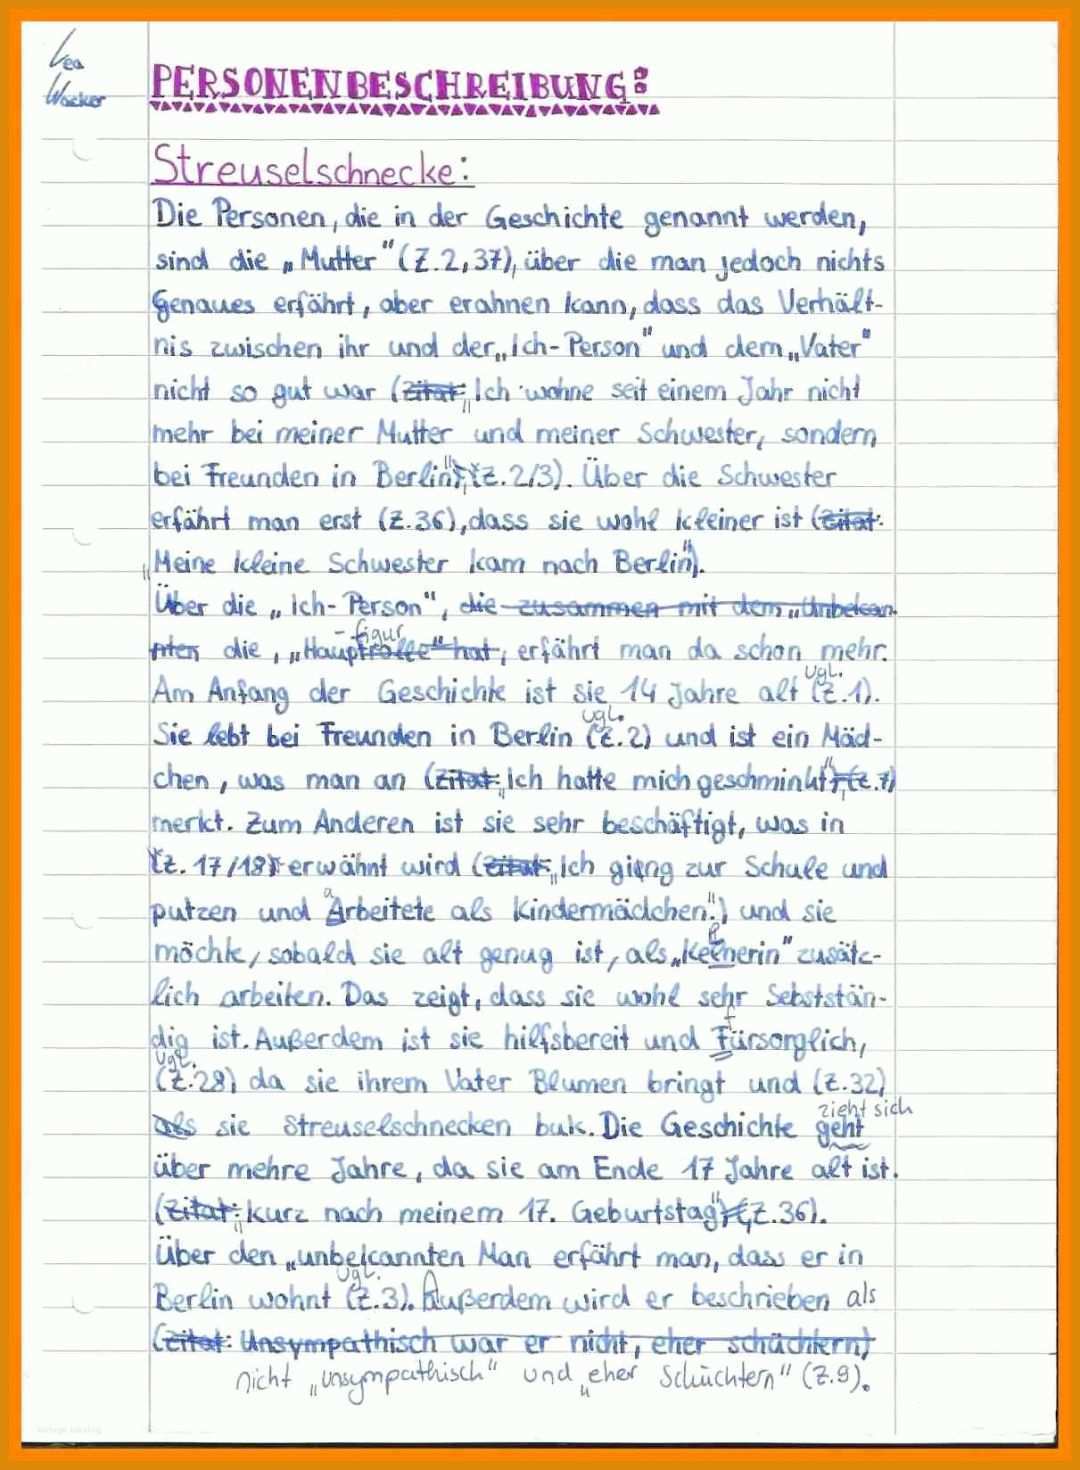 Lea
Wacker
PERSONENBESCHREIBUNG:
Streuselschnecke:
Die Personen, die in der Geschichte genannt werden,
sind die „Mutter" (Z.2,37), über die man jedoch nichts
Genaues erfährt, aber erahnen kann, dass das Verhält-
nis zwischen ihr und der „Ich-Person" und dem „Vater"
nicht so gut war (Zitat: „Ich wohne seit einem Jahr nicht
mehr bei meiner Mutter und meiner Schwester, sondern
bei Freunden in Berlin", (Z.2/3). Über die Schwester
erfährt man erst (Z.36), dass sie wohl kleiner ist (Zitat:
„Meine kleine Schwester kam nach Berlin").
Über die „Ich-Person", die zusammen mit dem „Unbekan-
nten die, „Hauptrolle" hat, erfährt man da schon mehr.
-figur
Am Anfang der Geschichte ist sie 14 Jahre alt (vgl. Z.1).
Sie lebt bei Freunden in Berlin (vgl. Z.2) und ist ein Mäd-
chen, was man an (Zitat: „Ich hatte mich geschminkt", (Z.7)
merkt. Zum Anderen ist sie sehr beschäftigt, was in
(Z.17/18) erwähnt wird (Zitat: „Ich gieng zur Schule und
putzen und Arbeitete als Kindermädchen.") und sie
a
möchte, sobald sie alt genug ist, als „Kelnerin" zusätz-
l
lich arbeiten. Das zeigt, dass sie wohl sehr Sebststän-
dig ist. Außerdem ist sie hilfsbereit und Fürsorglich,
f
(vgl. Z.28) da sie ihrem Vater Blumen bringt und (Z.32)
als sie Streuselschnecken buk. Die Geschichte geht
zieht sich
über mehre Jahre, da sie am Ende 17 Jahre alt ist.
(Zitat: „kurz nach meinem 17. Geburtstag", (Z.36).
Über den „unbekannten Man erfährt man, dass er in
Berlin wohnt (vgl. Z.3). Außerdem wird er beschrieben als
(Zitat: Unsympathisch war er nicht, eher schüchtern)
nicht „unsympathisch" und „eher Schüchtern" (Z.9).